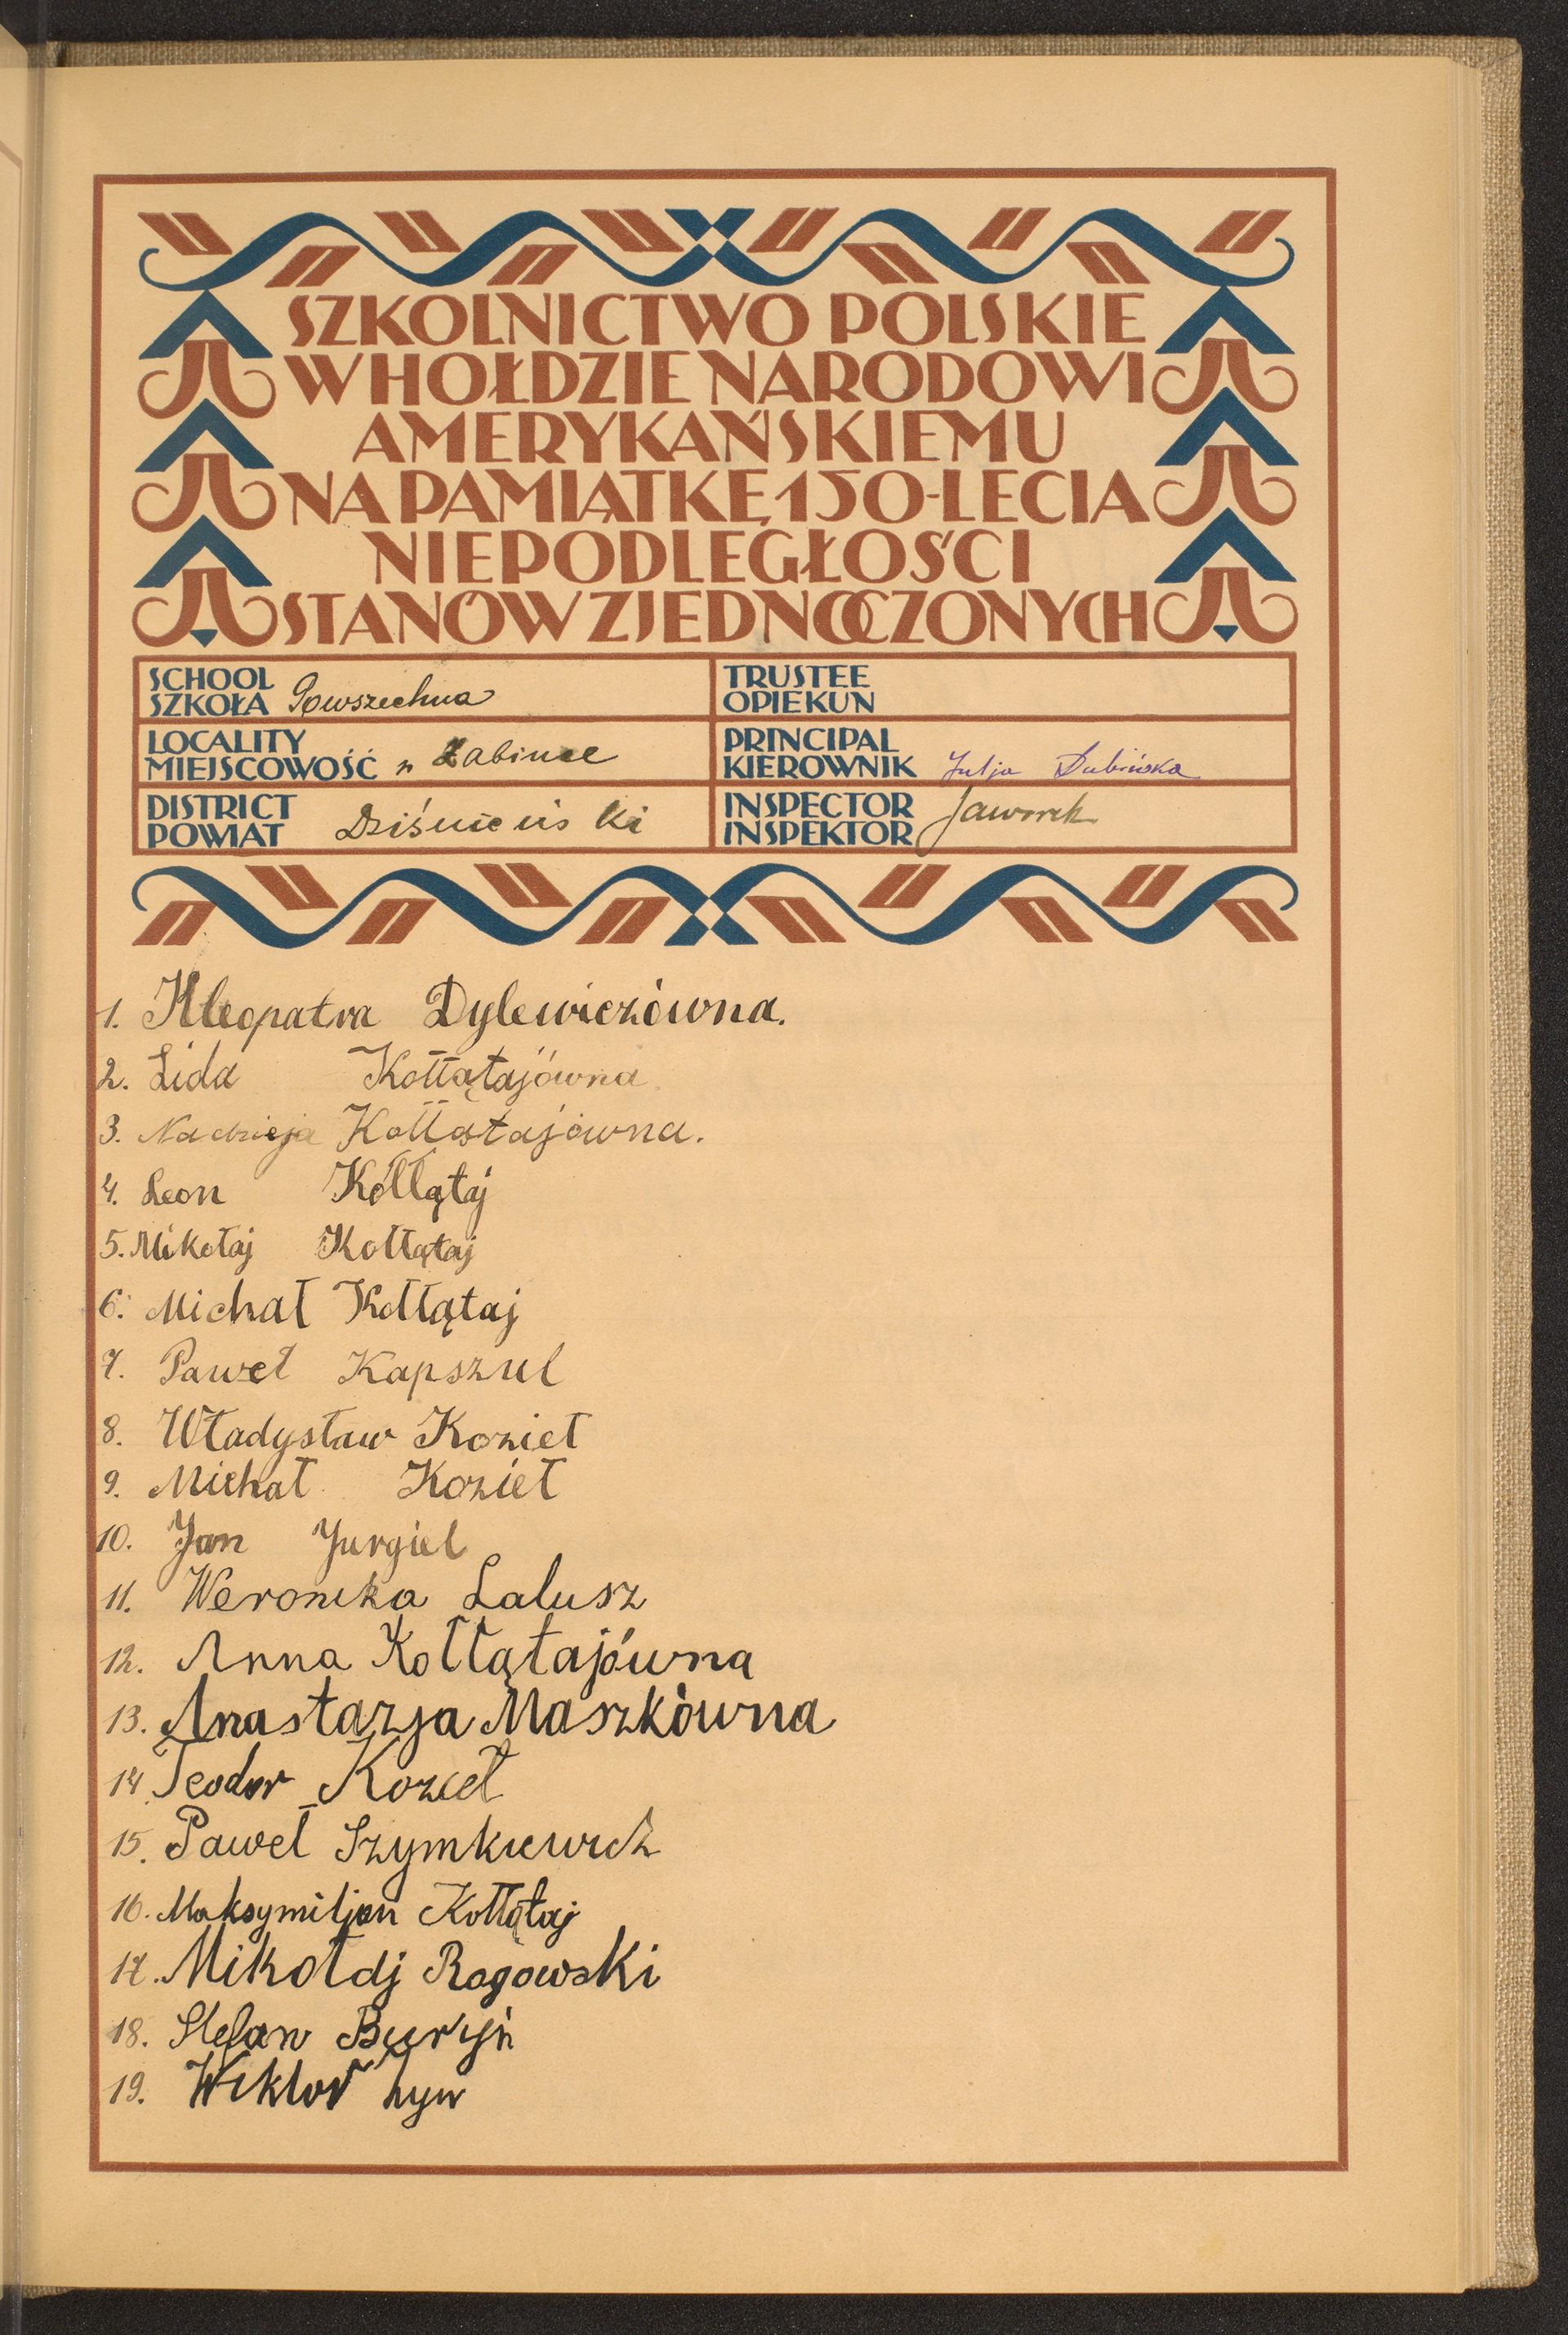 SZKOLNICTWO POLSKIE
W HOŁDZIE NARODOWI
AMERYKAŃSKIEMU
NA PAMIĄTKĘ 150-LECIA
NIEPODLEGŁOŚCI
STANÓW ZJEDNOCZONYCH
SCHOOL
SZKOŁA Powszechna
TRUSTEE
OPIEKUN
LOCALITY
MIEJSCOWOŚĆ w Żabince
PRINCIPAL
KIEROWNIK Julja Dubińska
DISTRICT
POWIAT Dziśnieński
INSPECTOR
INSPEKTOR Jaworek
1. Kleopatra Dylewiczówna.
2. Lida Kołłątajówna
3. Nadzieja Kołłątajówna.
4. Leon Kółłątaj
5. Mikołaj Kołłątaj
6. Michał Kołłątaj
7. Paweł Kapszul
8. Władysław Kozieł
9. Michał Kozieł
10. Jan Jurgiel
11. Weronika Lalusz
12. Anna Kołłątajówna
13. Anastazja Maszkówna
14. Teodor Kozieł
15. Paweł Szymkiewicz
16. Maksymiljan Kołłątaj
17. Mikołaj Rogowski
18. Stefan Buryń
19. Wiktor